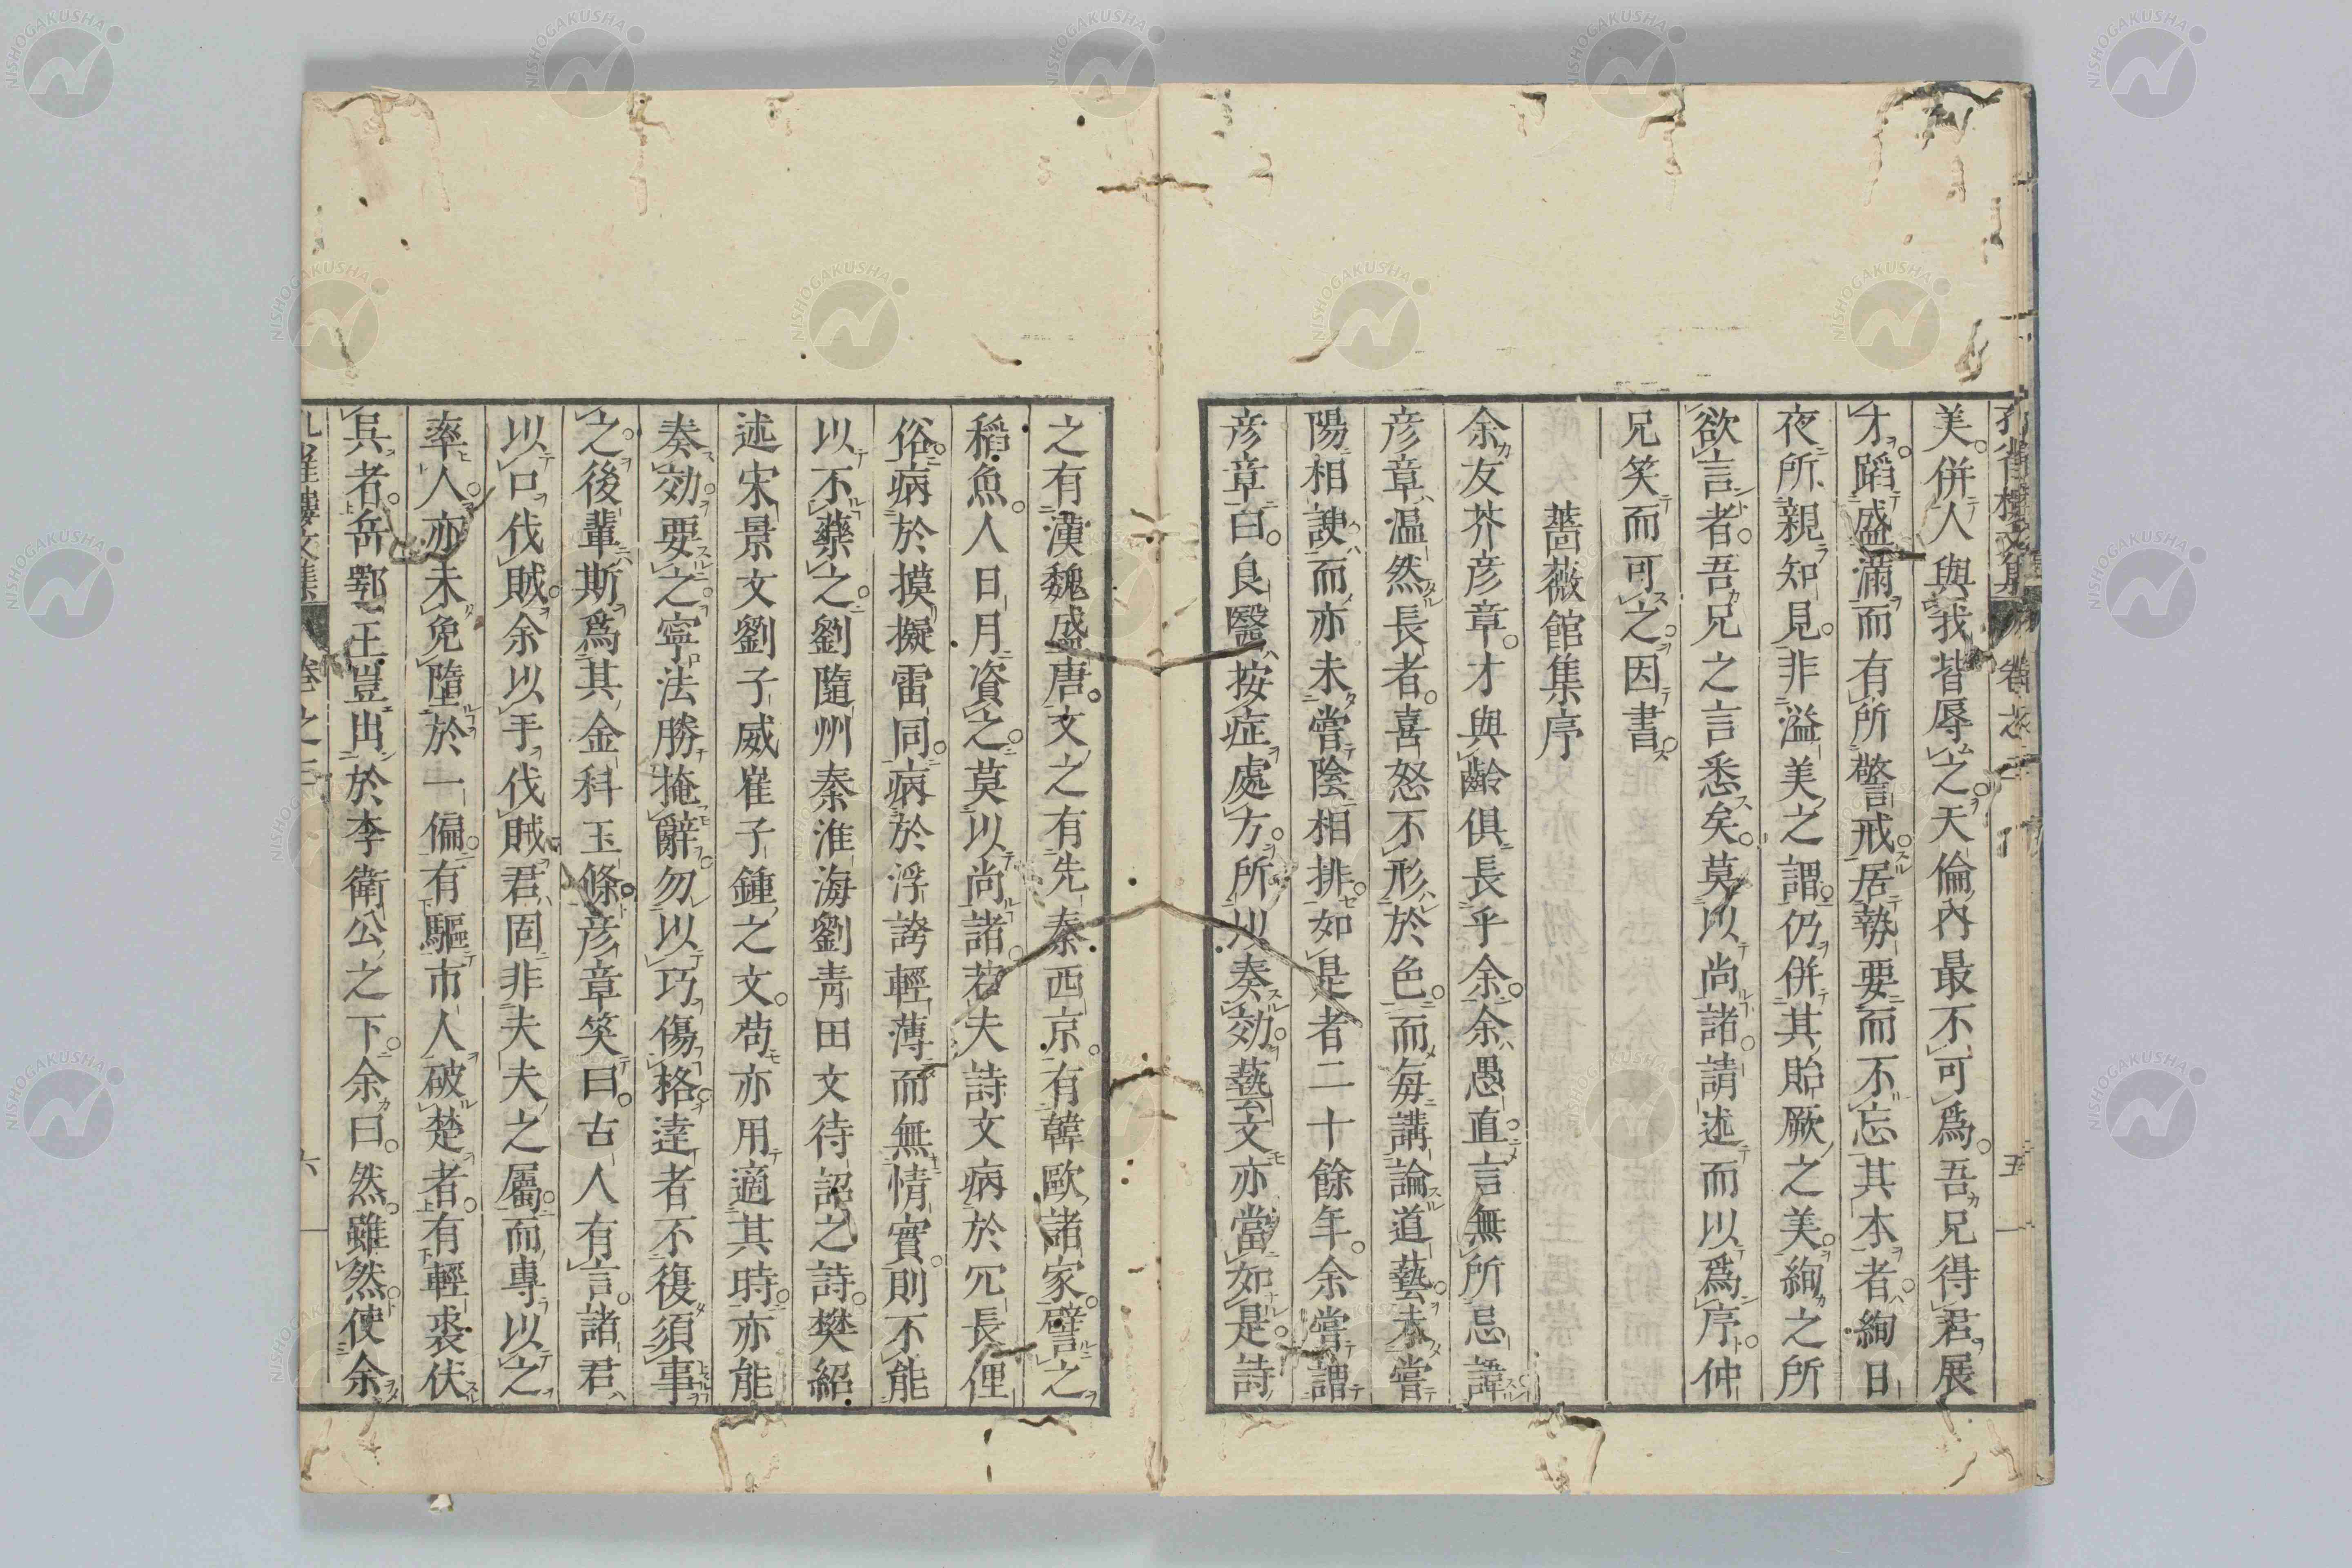 孔雀樓文集 卷之三 五
美。併人與我皆辱之。天倫內最不可爲。吾兄得君展
才。蹈盛滿而有所警戒。居勢要而不忘其本者。絢日
夜所親知見。非溢美之謂。仍併其貽厥之美。絢之所
欲言者。吾兄之言悉矣。莫以尚諸。請述而以爲序。仲
兄笑而可之。因書。
薔薇館集序
余友芥彥章。才與齡俱長乎余。余愚直。言無所忌諱。
彥章溫然長者。喜怒不形於色。而每講論道藝。未嘗
陽相諛。而亦未嘗陰相排。如是者二十餘年。余嘗謂
彥章曰。良醫按症處方。所以奏効。藝文亦當如是。詩
之有漢魏盛唐。文之有先秦西京。有韓歐諸家。譬之
稻魚。人日月資之。莫以尚諸。若夫詩文病於冗長俚
俗。病於摸擬雷同。病於浮誇輕薄而無情實。則不能
以不藥之。劉隨州秦淮海劉青田文待詔之詩。樊紹
述宋景文劉子威崔子鍾之文。苟亦用適其時。亦能
奏効。要之寧法勝掩辭。勿以巧傷格。達者不復須事
之。後輩斯爲其金科玉條。彥章笑曰。古人有言。諸君
以口伐賊。余以手伐賊。君固非夫夫之屬。而專以之
率人。亦未免墮於一偏。有驅市人破楚者。有輕裘伏
兵者。岳鄂王豈出於李衛公之下。余曰。然。雖然。使余
孔雀樓文集 卷之三 六